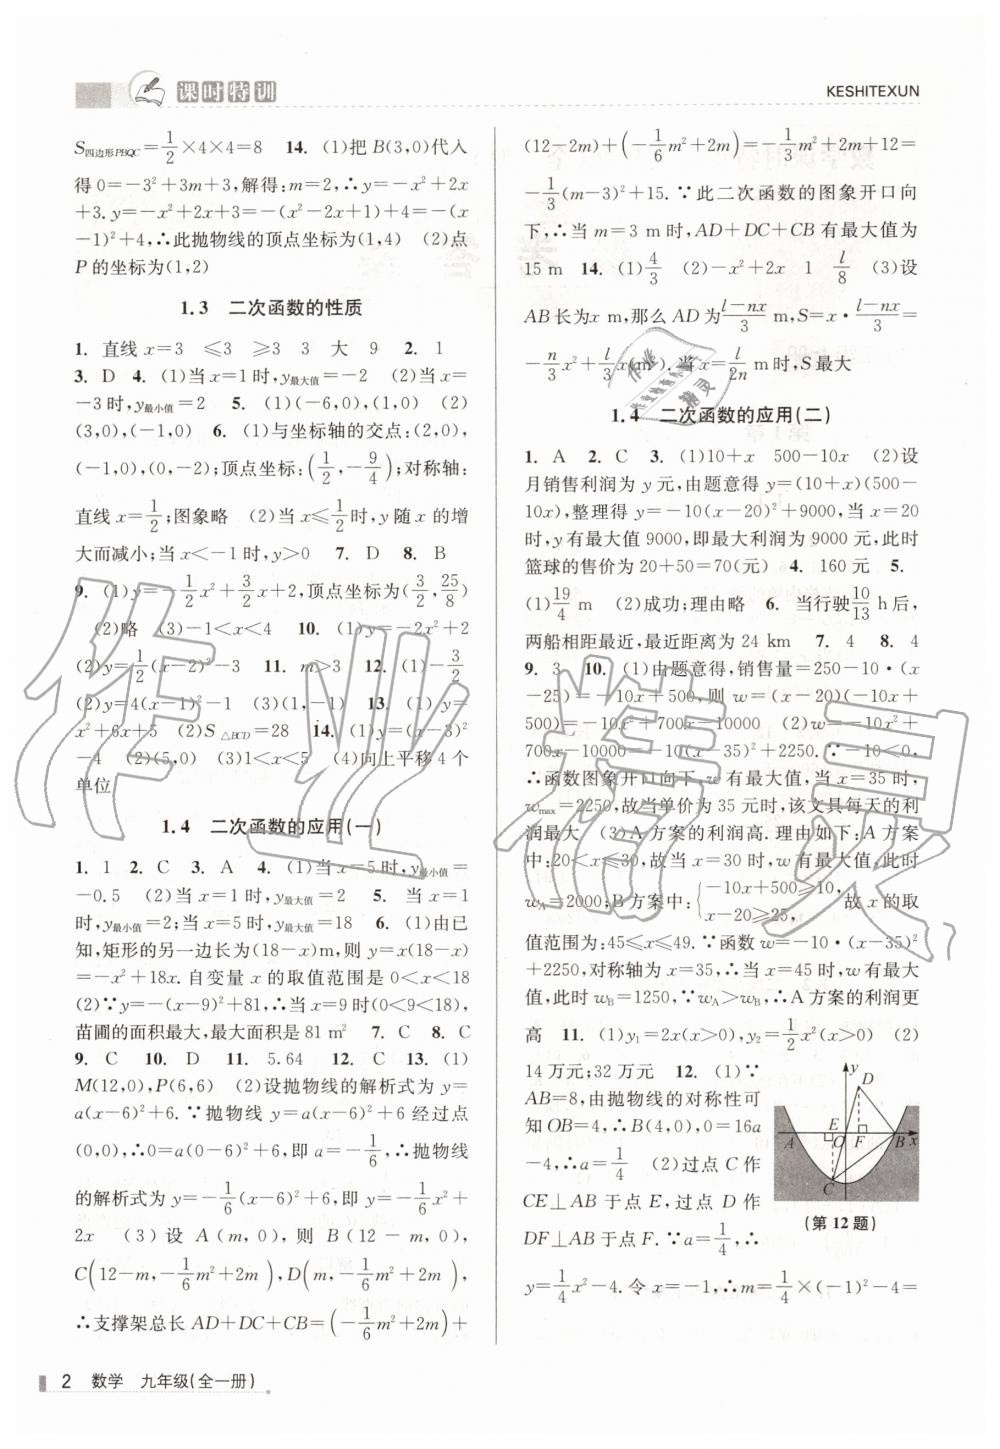 课时特训
KESHITEXUN
S四边形PBQC=1/2×4×4=8 14. (1)把 B(3,0)代入
得 0=-3²+3m+3,解得:m=2,∴y=-x²+2x
+3. y=-x²+2x+3=-(x²-2x+1)+4=-(x
-1)²+4,∴此抛物线的顶点坐标为(1,4) (2)点
P 的坐标为(1,2)
1.3 二次函数的性质
1. 直线 x=3 ≤3 ≥3 3 大 9 2. 1
3. D 4. (1)当 x=1 时,y最大值=-2 (2)当 x=
-3 时,y最小值=2 5. (1)(-6,0),(1,0) (2)
(3,0),(-1,0) 6. (1)与坐标轴的交点:(2,0),
(-1,0),(0,-2);顶点坐标:(1/2,-9/4);对称轴:
直线 x=1/2;图象略 (2)当 x≤1/2时,y 随 x 的增
大而减小;当 x<-1 时,y>0 7. D 8. B
9. (1)y=-1/2x²+3/2x+2,顶点坐标为(3/2,25/8)
(2)略 (3)-1<x<4 10. (1)y=-2x²+2
(2)y=1/2(x-2)²-3 11. m>3 12. (1)-3/2
(2)y=4(x-1)²-1 (3)(1,-1) 13. (1) y=
x²+6x+5 (2)S△BCD=28 14. (1)y=(x-3)²
-4 (2)(5,0) (3)1<x<5 (4)向上平移 4 个
单位
1.4 二次函数的应用(一)
1. 1 2. C 3. A 4. (1)当 x=5 时,y最小值=
-0.5 (2)当 x=1 时,y最大值=2 5. 当 x=1
时,y最小值=2;当 x=5 时,y最大值=18 6. (1)由已
知,矩形的另一边长为(18-x)m,则 y=x(18-x)
=-x²+18x. 自变量 x 的取值范围是 0<x<18
(2)∵y=-(x-9)²+81,∴当 x=9 时(0<9<18),
苗圃的面积最大,最大面积是 81 m² 7. C 8. C
9. C 10. D 11. 5.64 12. C 13. (1)
M(12,0),P(6,6) (2)设抛物线的解析式为 y=
a(x-6)²+6. ∵抛物线 y=a(x-6)²+6 经过点
(0,0),∴0=a(0-6)²+6,即 a=-1/6,∴抛物线
的解析式为 y=-1/6(x-6)²+6,即 y=-1/6x²+
2x (3)设 A(m,0),则 B(12-m,0),
C(12-m,-1/6m²+2m),D(m,-1/6m²+2m),
∴支撑架总长 AD+DC+CB=(-1/6m²+2m)+
(12-2m)+(-1/6m²+2m)=-1/3m²+2m+12=
-1/3(m-3)²+15. ∵此二次函数的图象开口向
下,∴当 m=3 m 时,AD+DC+CB 有最大值为
15 m 14. (1)4/3 (2)-x²+2x 1 l/8 (3)设
AB 长为 x m,那么 AD 为(l-nx)/3 m,S=x·(l-nx)/3=
-n/3x²+l/3x(m²). 当 x=l/2n m 时,S 最大
1.4 二次函数的应用(二)
1. A 2. C 3. (1)10+x 500-10x (2)设
月销售利润为 y 元,由题意得 y=(10+x)(500-
10x),整理得 y=-10(x-20)²+9000,当 x=20
时,y 有最大值 9000,即最大利润为 9000 元,此时
篮球的售价为 20+50=70(元) 4. 160 元 5.
(1)19/4 m (2)成功;理由略 6. 当行驶10/13 h 后,
两船相距最近,最近距离为 24 km 7. 4 8. 4
9. 3 10. (1)由题意得,销售量=250-10·(x
-25)=-10x+500,则 w=(x-20)(-10x+
500)=-10x²+700x-10000 (2)w=-10x²+
700x-10000=-10(x-35)²+2250. ∵-10<0,
∴函数图象开口向下,w 有最大值,当 x=35 时,
wmax=2250,故当单价为 35 元时,该文具每天的利
润最大 (3)A 方案的利润高. 理由如下:A 方案
中:20<x≤30,故当 x=30 时,w 有最大值,此时
wA=2000;B 方案中:{-10x+500≥10, x-20≥25, 故 x 的取
值范围为:45≤x≤49. ∵函数 w=-10·(x-35)²
+2250,对称轴为 x=35,∴当 x=45 时,w 有最大
值,此时 wB=1250,∵wA>wB,∴A 方案的利润更
高 11. (1)y₁=2x(x>0),y₂=1/2x²(x>0) (2)
14 万元;32 万元 12. (1)∵
AB=8,由抛物线的对称性可
知 OB=4,∴B(4,0),0=16a
-4,∴a=1/4 (2)过点 C 作
CE⊥AB 于点 E,过点 D 作
DF⊥AB 于点 F. ∵a=1/4,∴
y=1/4x²-4. 令 x=-1,∴m=1/4×(-1)²-4=
y
D
E
A O F B x
C
(第 12 题)
2 数学 九年级(全一册)
作业精灵